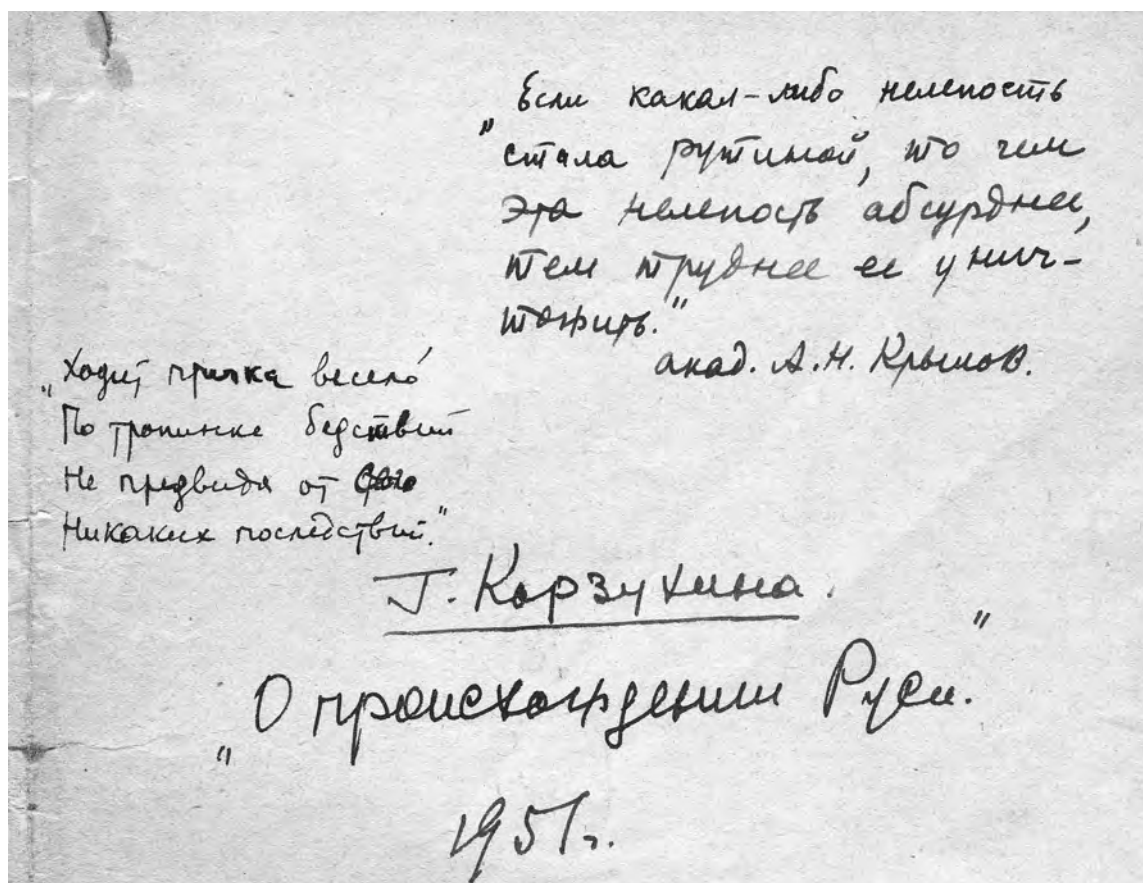 „Если какая-либо нелепость
стала рутиной, то чем
эта нелепость абсурднее,
тем труднее ее унич-
тожить."
акад. А.Н. Крылов.
„Ходит птичка весело
По тропинке бедствий
Не предвидя от сего
Никаких последствий."
Г. Корзухина.
„О происхождении Руси."
1951г.